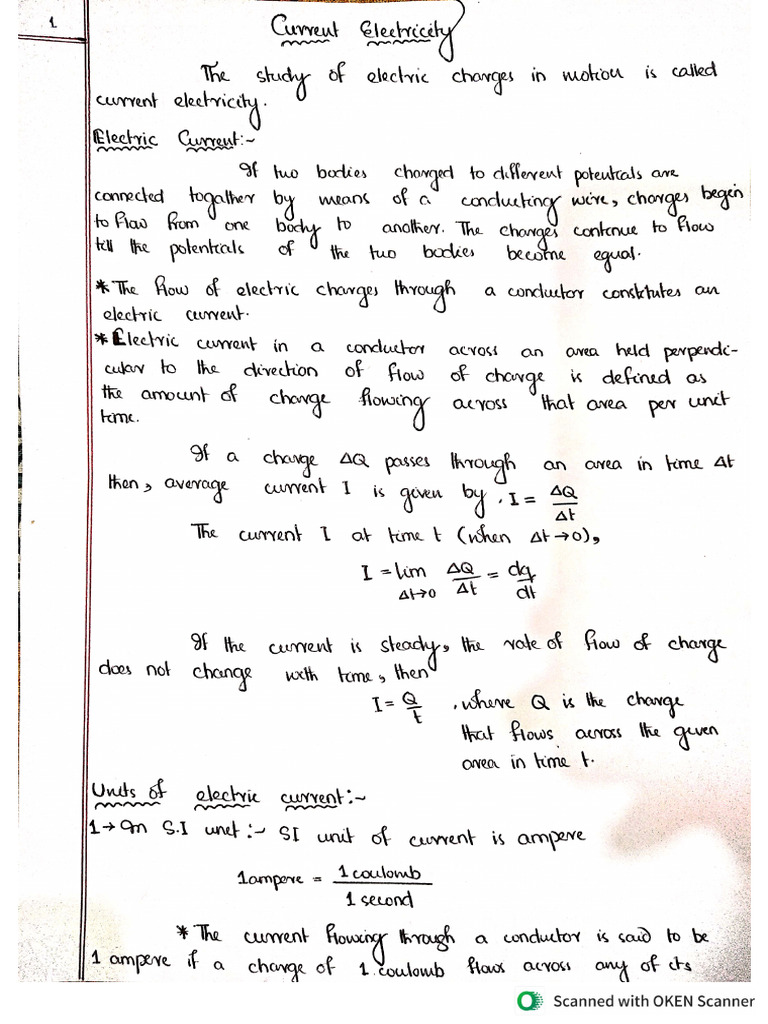 1
Current Electricity
The study of electric charges in motion is called
current electricity.
Electric Current:-
If two bodies charged to different potentials are
connected togather by means of a conducting wire, charges begin
to flow from one body to another. The charges continue to flow
till the potentials of the two bodies become equal.
* The flow of electric charges through a conductor constitutes an
electric current.
* Electric current in a conductor across an area held perpendi-
cular to the direction of flow of charge is defined as
the amount of charge flowing across that area per unit
time.
If a charge ΔQ passes through an area in time Δt
then, average current I is given by, I = ΔQ/Δt
The current I at time t (when Δt→0),
I = lim Δt→0 ΔQ/Δt = dq/dt
If the current is steady, the rate of flow of charge
does not change with time, then
I = Q/t , where Q is the charge
that flows across the given
area in time t.
Units of electric current:-
1→ In S.I unit:- SI unit of current is ampere
1 ampere = 1 coulomb/1 second
* The current flowing through a conductor is said to be
1 ampere if a charge of 1 coulomb flows across any of its
Scanned with OKEN Scanner